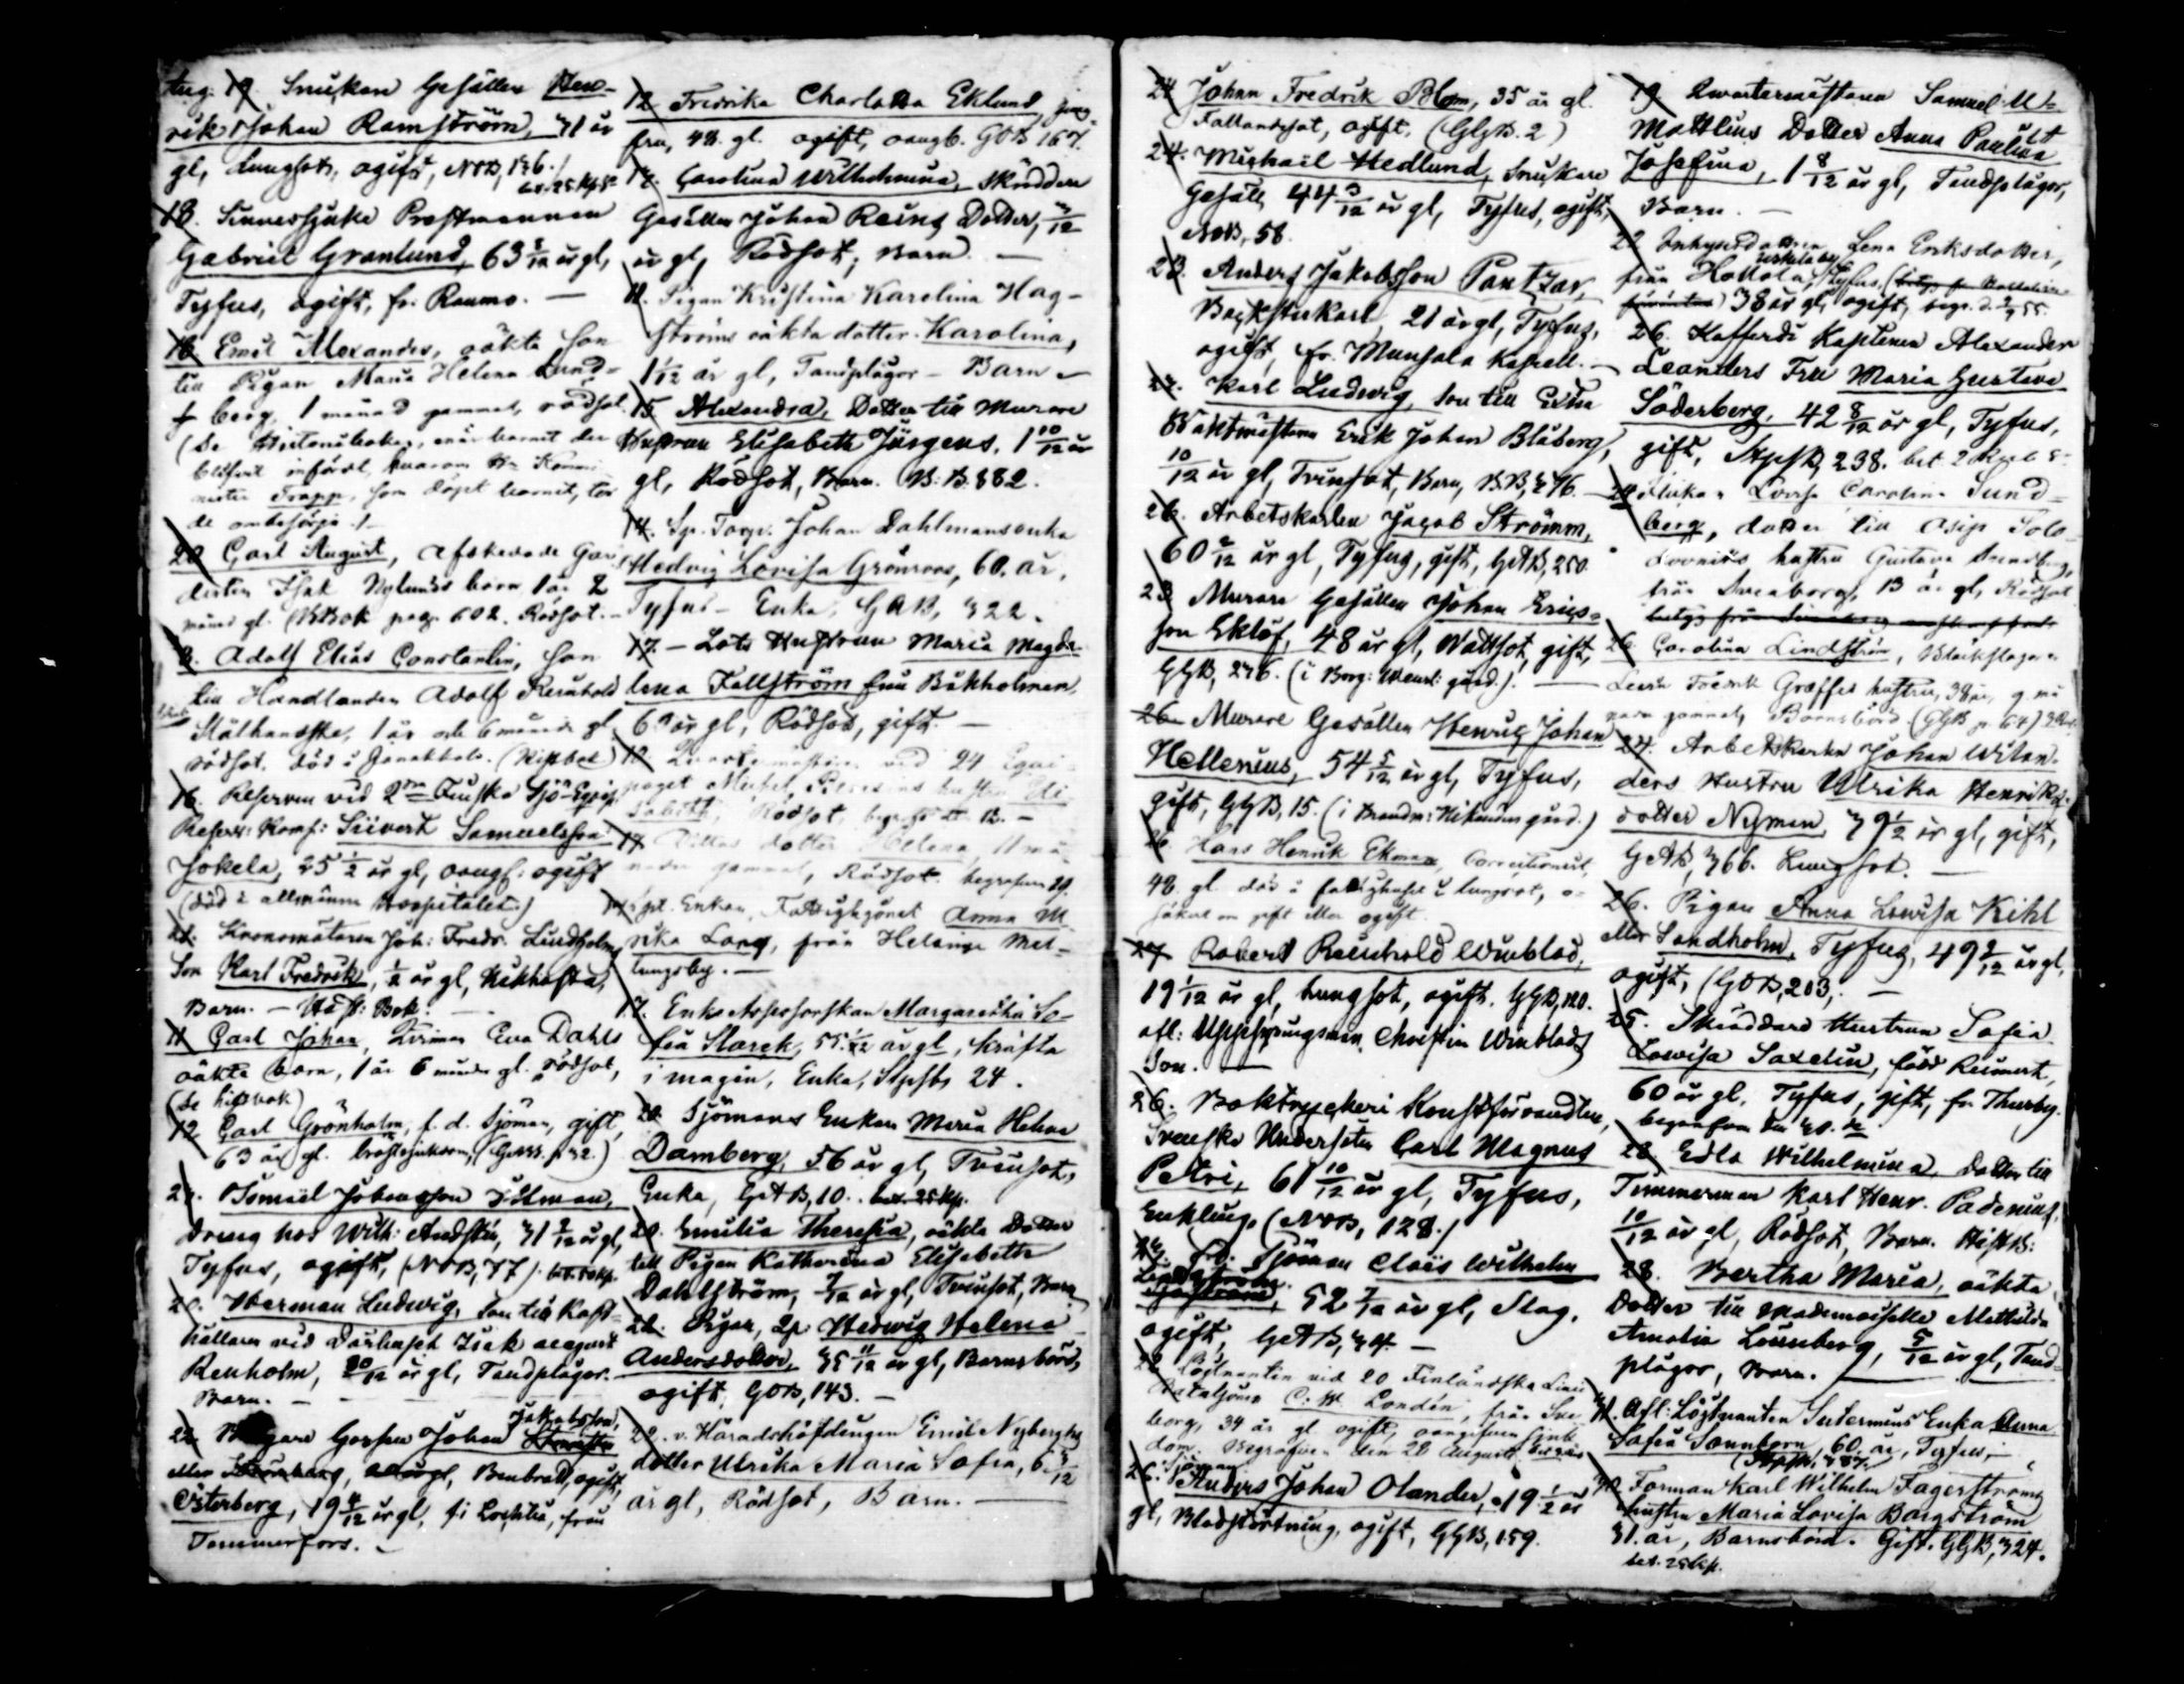 Aug. 19. Snickare Gesällen Hen-
rik Johan Ramström, 31 år
gl, Lungsot, ogift, NOB, 136.
bet. 25 kop. Sr
18. Sinnessjuke Prestmannen
Gabriel Granlund, 63 5/12 år gl,
Tyfus, ogift, fr. Raumo. —
16. Emil Alexander, oäkta son
till Pigan Maria Helena Lund-
berg, 1 månad gammal, rödsot
(Se Historieboken, när barnet der
blifvit infördt, hvarom Hr Kommi-
nister Trapp, som döpt barnet, tor-
de ombesörja.)
20. Carl August, Afskedade Gar-
disten Isak Nylunds barn 1 år 2
månd gl. (BBok pag. 602. Rödsot. —
8. Adolf Elias Constantin, Son
till Handlanden Adolf Reinhold
Stålhandske, 1 år och 6 månader gl,
rödsot. död i Janakkala. (Kipbok)
16. Reserven vid 2dra Finska Sjö-Equip.
Reserv: Komp: Siivert Samuelsson
Jokela, 25 1/2 år gl, oangf: ogift
(död i allmänna Hospitalet.)
21. Kronomätaren Joh: Fredr. Lindholms
Son Karl Fredrik, 1/2 år gl, Kikhosta,
Barn. — Hist: Bok.
11. Carl Johan, Pigan Eva Dahls
oäkta barn, 1 år 6 månder gl. rödsot,
(Se hipbok)
12. Carl Grönholm, f. d. Sjöman, gift,
63 år gl. bröstsjukdom, (GABB. p. 32.)
21. Ismael Johansson Öhman,
Dräng hos Wilh: Andstén, 31 2/12 år gl,
Tyfus, ogift, (NOB, 77). bet. 50 kp.
20. Herman Ludwig, Son till Rast-
hållaren vid Dårhuset Isak August
Renholm, 10/12 år gl, Tandplågor.
Barn. —
22. Bagare Gossen Johan Jakobsson,
eller
Österberg, 19 4/12 år gl, fr Lochteå, från
Tammerfors. —
12. Fredrika Charlotta Eklund, jung-
fru, 48. gl. ogift, oangf. GOB 167.
17. Carolina Wilhelmina, Skräddare
Gesällen Johan Reins Dotter, 3/12
år gl, Rödsot, Barn. —
11. Pigan Kristina Karolina Hag-
ströms oäkta dotter Karolina,
1 1/12 år gl, Tandplågor — Barn —
15. Alexandra, Dotter till Murare
Hustrun Elisabeth Jürgens, 1 10/12 år
gl, Rödsot, Barn. B: B. 882.
14. Sp. Torp. Johan Dahlmans enka
Hedvig Lovisa Grönroos, 60. år,
Tyfus — Enka, GAB, 322.
17. — Lots Hustrun Maria Magda-
lena Fallström från Båkholmen,
60 år gl, Rödsot, gift. —
18. Qvartermästaren vid 24 Equi-
paget Michel, Petersons hustru Eli-
sabett, Rödsot, begrafd d. 18. —
17. Dittos dotter Helena, 11 må-
nader gammal, Rödsot. begrafven 19.
Enkan, Fattighjonet Anna M-
rika Lang, från Helsinge Mal-
tungsby. —
17. Enke Assessorskan Margaretha So-
fia Starck, 55 1/12 år gl, kräfta
i magen, Enka, Stpsb, 24.
20. Sjömans Enkan Maria Helena
Damberg, 56 år gl, Trånsot,
Enka, GAB, 10. bet. 25 kp.
20. Emilia Theresia, oäkta Dotter
till Pigan Katharina Elisabeth
Dahlström, 7/12 år gl, Trånsot, Barn
22. Pigan, Sp. Hedwig Helena
Andersdotter, 35 11/12 år gl, Barnsbörd,
ogift, GOB, 143. —
22. v. Häradshöfdingen Emil Nybergs
dotter Ulrika Maria Sofia, 6 3/12
år gl, Rödsot, Barn. —
24. Johan Fredrik Blom, 35 år gl.
Fallandesot, ogift. (GGB. 2)
24. Michaël Hedlund, Snickare
Gesäll, 44 3/12 år gl, Tyfus, ogift,
NOB, 58.
23. Anders Jakobsson Pantzar,
Backstukarl, 21 år gl, Tyfus,
ogift, fr. Munsala Kapell. —
22. Karl Ludvig, Son till Extra
Waktmästaren Erik Johan Blåberg,
10/12 år gl, Trånsot, Barn, B.B, 276. —
26. Arbetskarlen Jacob Strömm,
60 2/12 år gl, Tyfus, gift, GAB, 250.
23. Murare Gesällen Johan Erics-
son Eklöf, 48 år gl, Wattsot, gift,
GGB, 276. (i Borg: Wensel: gård.) —
26. Murare Gesällen Henric Johan
Hellenius, 54 5/12 år gl, Tyfus,
gift, GGB, 15. (i Brandm: Nikanders gård.)
26. Hans Henrik Ekman, Correctionist,
48. gl. död i fattighuset i lungsot, o-
säkert om gift eller ogift.
27. Robert Reinhold Winblad,
19 1/12 år gl, lungsot, ogift. GGB, 120.
afl: Uppsyningsman Christian Winblads
Son. —
26. Boktryckeri Konstförvandten,
Svenske Undersåten Carl Magnus
Petri, 61 10/12 år gl, Tyfus,
Enkling. (NOB, 128.)
Fd. Sjöman Claës Wilhelm
52 7/12 år gl, Slag,
ogift, GAB, 34. —
22. Löjtnanten vid 20 Finländska Linie
Bataljonen C. W. Londén, från Svea-
borg, 34 år gl ogift, oangifven sjuk-
dom. Begrafven den 28 Augusti
26. Sjöman Anders Johan Olander, 19 1/2 år
gl, Blodstörtning, ogift, GGB, 159.
19. Qvartermästaren Samuel Ul-
Mattlins Dotter Anna Paulina
Josefina, 1 8/12 år gl, Tandplågor,
Barn. —
22. Inhysesdottren Lena Eriksdotter,
från Hollola, Tyfus,
38 år gl, ogift,
26. Kofferdi Kaptenen Alexander
Leanders Fru Maria Gustava
Söderberg, 42 8/12 år gl, Tyfus,
gift, StpsB, 238. bet. 2 Rub. S.
28. Flickan Lovisa Carolina Sund-
berg, dotter till Asip Solo-
dovnikos hustru Gustava Sundberg,
från Sveaborg, 13 år gl, Rödsot
26. Carolina Lindström, Bleckslagaren
Leeve Fredrik Græffes hustru, 38 år, 9 må-
nader gammal, Barnsbörd. (GGB p. 64)
24. Arbetskarlen Johan Wilan-
ders Hustru Ulrika Henriks-
dotter Nyman, 39 1/2 år gl, gift,
GAB, 366. Lungsot. —
26. Pigan Anna Lovisa Kihl
eller Sandholm, Tyfus, 49 9/12 år gl,
ogift, (GOB, 203, —
25. Skräddare Hustrun Sofia
Lowisa Saxelin, född Reimert,
60 år gl, Tyfus, gift, fr. Thusby.
begrafven den 30.
28. Edla Wilhelmina, Dotter till
Timmerman Karl Henr. Padenius,
10/12 år gl, Rödsot, Barn. HistB:
28. Bertha Maria, oäkta
Dotter till Mademoiselle Mathilda
Amalia Lönnberg, 5/12 år gl, Tand-
plågor, Barn. —
31. Afl: Löjtnanten Sutermäns Enka Anna
Sofia Sonnborn, 60. år, Tyfus, —
30. Forman Karl Wilhelm Fagerströms
hustru Maria Lovisa Borgström
31. år, Barnsbörd. Gift. GGB, 324.
bet. 25 kp.